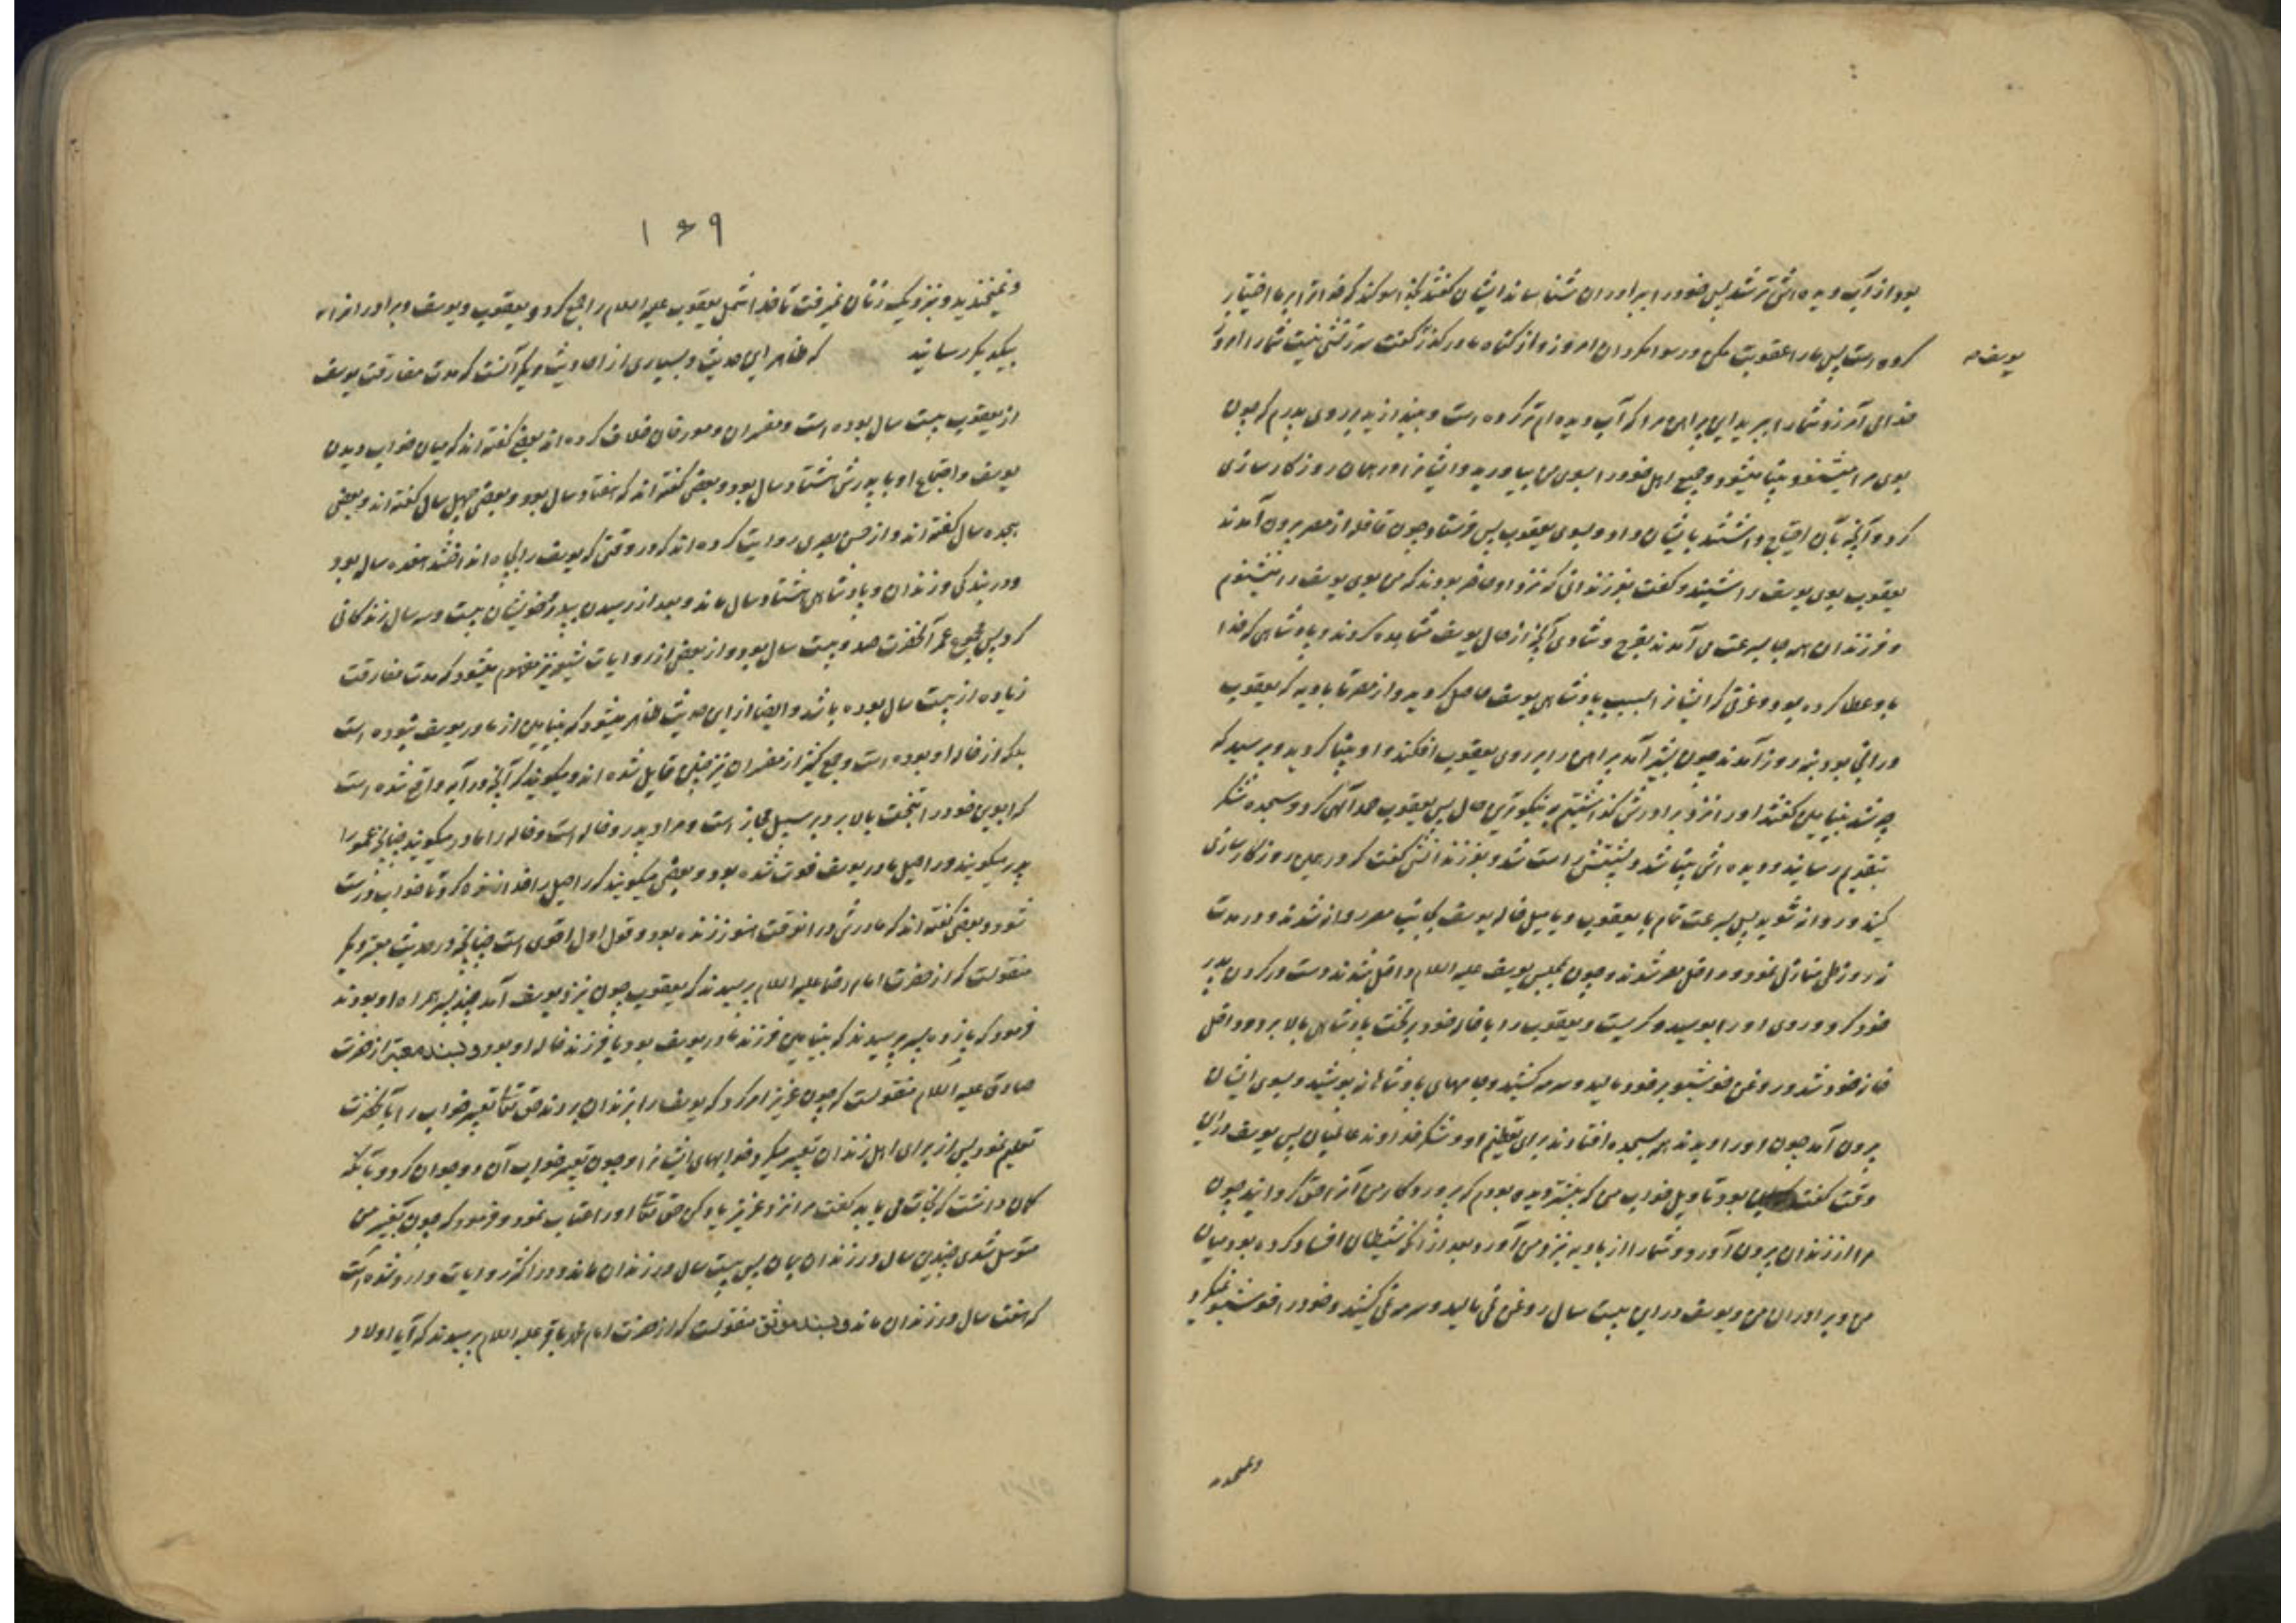 بود از آب دیده‌اش تر شد پس خود را ببرادران شناساند ایشان گفتند بخدا سوگند که خدا ترا بر ما اختیار
کرده است پس ما را عقوبت مکن و رسوا مگردان امروز و از گناه ما درگذر گفت سرزنشی نیست شما را امروز
یوسف
خدای آمرزد شما را ببرید این پیراهن مرا که آب دیده‌ام تر کرده است و بیندازید بر روی پدرم که چون
بوی مرا میشنود بینا میشود و جمیع اهل خود را بسوی من بیاورید و ایشانرا در همان روز کارسازی
کرد و آنچه بآن احتیاج داشتند بایشان داد و بسوی یعقوب پس فرستاد چون قافله از مصر بیرون آمدند
یعقوب بوی یوسف را شنید و گفت بفرزندانی که نزد او حاضر بودند که من بوی یوسف را میشنوم
و فرزندان همه جا بسرعت می آمدند بفرح و شادی آنچه از حال یوسف مشاهده کردند و پادشاهی که خدا
باو عطا کرده بود و عزتی که ایشانرا بسبب پادشاهی یوسف حاصل گردید و از مصر تا بادیه که یعقوب
در آن بود بنه روز آمدند چون بشیر آمد پیراهن را بر روی یعقوب افکند و او بینا گردید و پرسید که
چه شد بنیامین گفتند او را نزد برادرش گذاشتیم به نیکوترین حال پس یعقوب حمد الهی کرد و سجده شکر
بتقدیم رسانید و دیده‌اش بینا شد و پشتش راست شد و بفرزندانش گفت که در همین روز کارسازی
کنید و روانه شوید پس بسرعت تمام با یعقوب و یامیل خاله یوسف بجانب مصر روانه شدند و در مدت
نه روز طی منازل نمود و داخل مصر شدند و چون بمجلس یوسف علیه السلام داخل شدند دست در گردن پدر
خود کرد و روی او را بوسید و گریست و یعقوب را با خاله خود بر تخت پادشاهی بالا برد و داخل
خانه خود شد و روغن خوشبو بر خود مالید و سرمه کشید و جامهای پادشاهانه پوشید و بسوی ایشان
بیرون آمد چون او را دیدند همه بسجده افتادند برای تعظیم او و شکر خداوند عالمیان پس یوسف در این
وقت گفت این بود تاویل خواب من که پیشتر دیده بودم که پروردگار من آنرا حق گردانید چون
مرا از زندان بیرون آورد و شما را از بادیه بنزد من آورد بعد از آنکه شیطان افساد کرده بود میان
من و برادران من و یوسف در این بیست سال روغن نمی مالید و سرمه نمی کشید و خود را خوشبو نمیکرد
و نمیخندید
۱۶۹
و نمیخندید و بنزدیک زنان نمیرفت تا خدا شمل یعقوب علیه السلام را جمع کرد و یعقوب و یوسف و برادرانرا
بیکدیگر رسانید که ظاهر این حدیث و بسیاری از احادیث دیگر آنست که مدت مفارقت یوسف
از یعقوب بیست سال بوده است و مفسران و مورخان خلاف کرده اند بعضی گفته اند که میان خواب دیدن
یوسف و اجتماع او با پدرش هشتاد سال بود و بعضی گفته اند که هفتاد سال بود و بعضی چهل سال گفته اند و بعضی
هجده سال گفته اند و از حسن بصری روایت کرده اند که در وقتی که یوسف را بچاه انداختند هفده سال بود
و در بندگی و زندان و پادشاهی هشتاد سال ماند و بعد از رسیدن پدر و خویشان بیست و سه سال زندگانی
کرد پس مجموع عمر آنحضرت صد و بیست سال بود و از بعضی از روایات شیعه نیز مفهوم میشود که مدت مفارقت
زیاده از بیست سال بوده باشد و ایضا از این حدیث ظاهر میشود که بنیامین از مادر یوسف نبوده است
بلکه از خاله او بوده است و جمع کثیر از مفسران نیز چنین قایل شده اند و میگویند که آنچه در آیه واقع شده است
که ابوین خود را بتخت بالا برد بر سبیل مجاز است و مراد پدر و خاله است و خاله را مادر میگویند چنانچه عمو را
پدر میگویند و راحیل مادر یوسف فوت شده بود و بعضی میگویند که راحیل را خدا زنده کرد تا خواب درست
شود و بعضی گفته اند که مادرش در آنوقت هنوز زنده بود و قول اول اقوی است چنانچه در حدیث معتبر دیگر
منقولست که از حضرت امام رضا علیه السلام پرسیدند که یعقوب چون بنزد یوسف آمد چند پسر همراه او بودند
فرمود که یازده پسر پرسیدند که بنیامین فرزند مادر یوسف بود یا فرزند خاله او بود و بسند معتبر از حضرت
صادق علیه السلام منقولست که چون عزیز امر کرد که یوسف را بزندان بردند حق تعالی تعبیر خواب را بآنحضرت
تعلیم نمود پس از برای اهل زندان تعبیر میکرد خوابهای ایشانرا و چون تعبیر خواب آن دو جوان کرد و بآنکه
گمان داشت که نجات می یابد گفت مرا نزد عزیز یاد کن حق تعالی او را عتاب نمود و فرمود که چون بغیر من
متوسل شدی چندین سال در زندان بمان پس بیست سال در زندان ماند و در اکثر روایات وارد شده است
که هفت سال در زندان ماند و بسند موثق منقولست که از حضرت امام محمد باقر علیه السلام پرسیدند که آیا اولاد